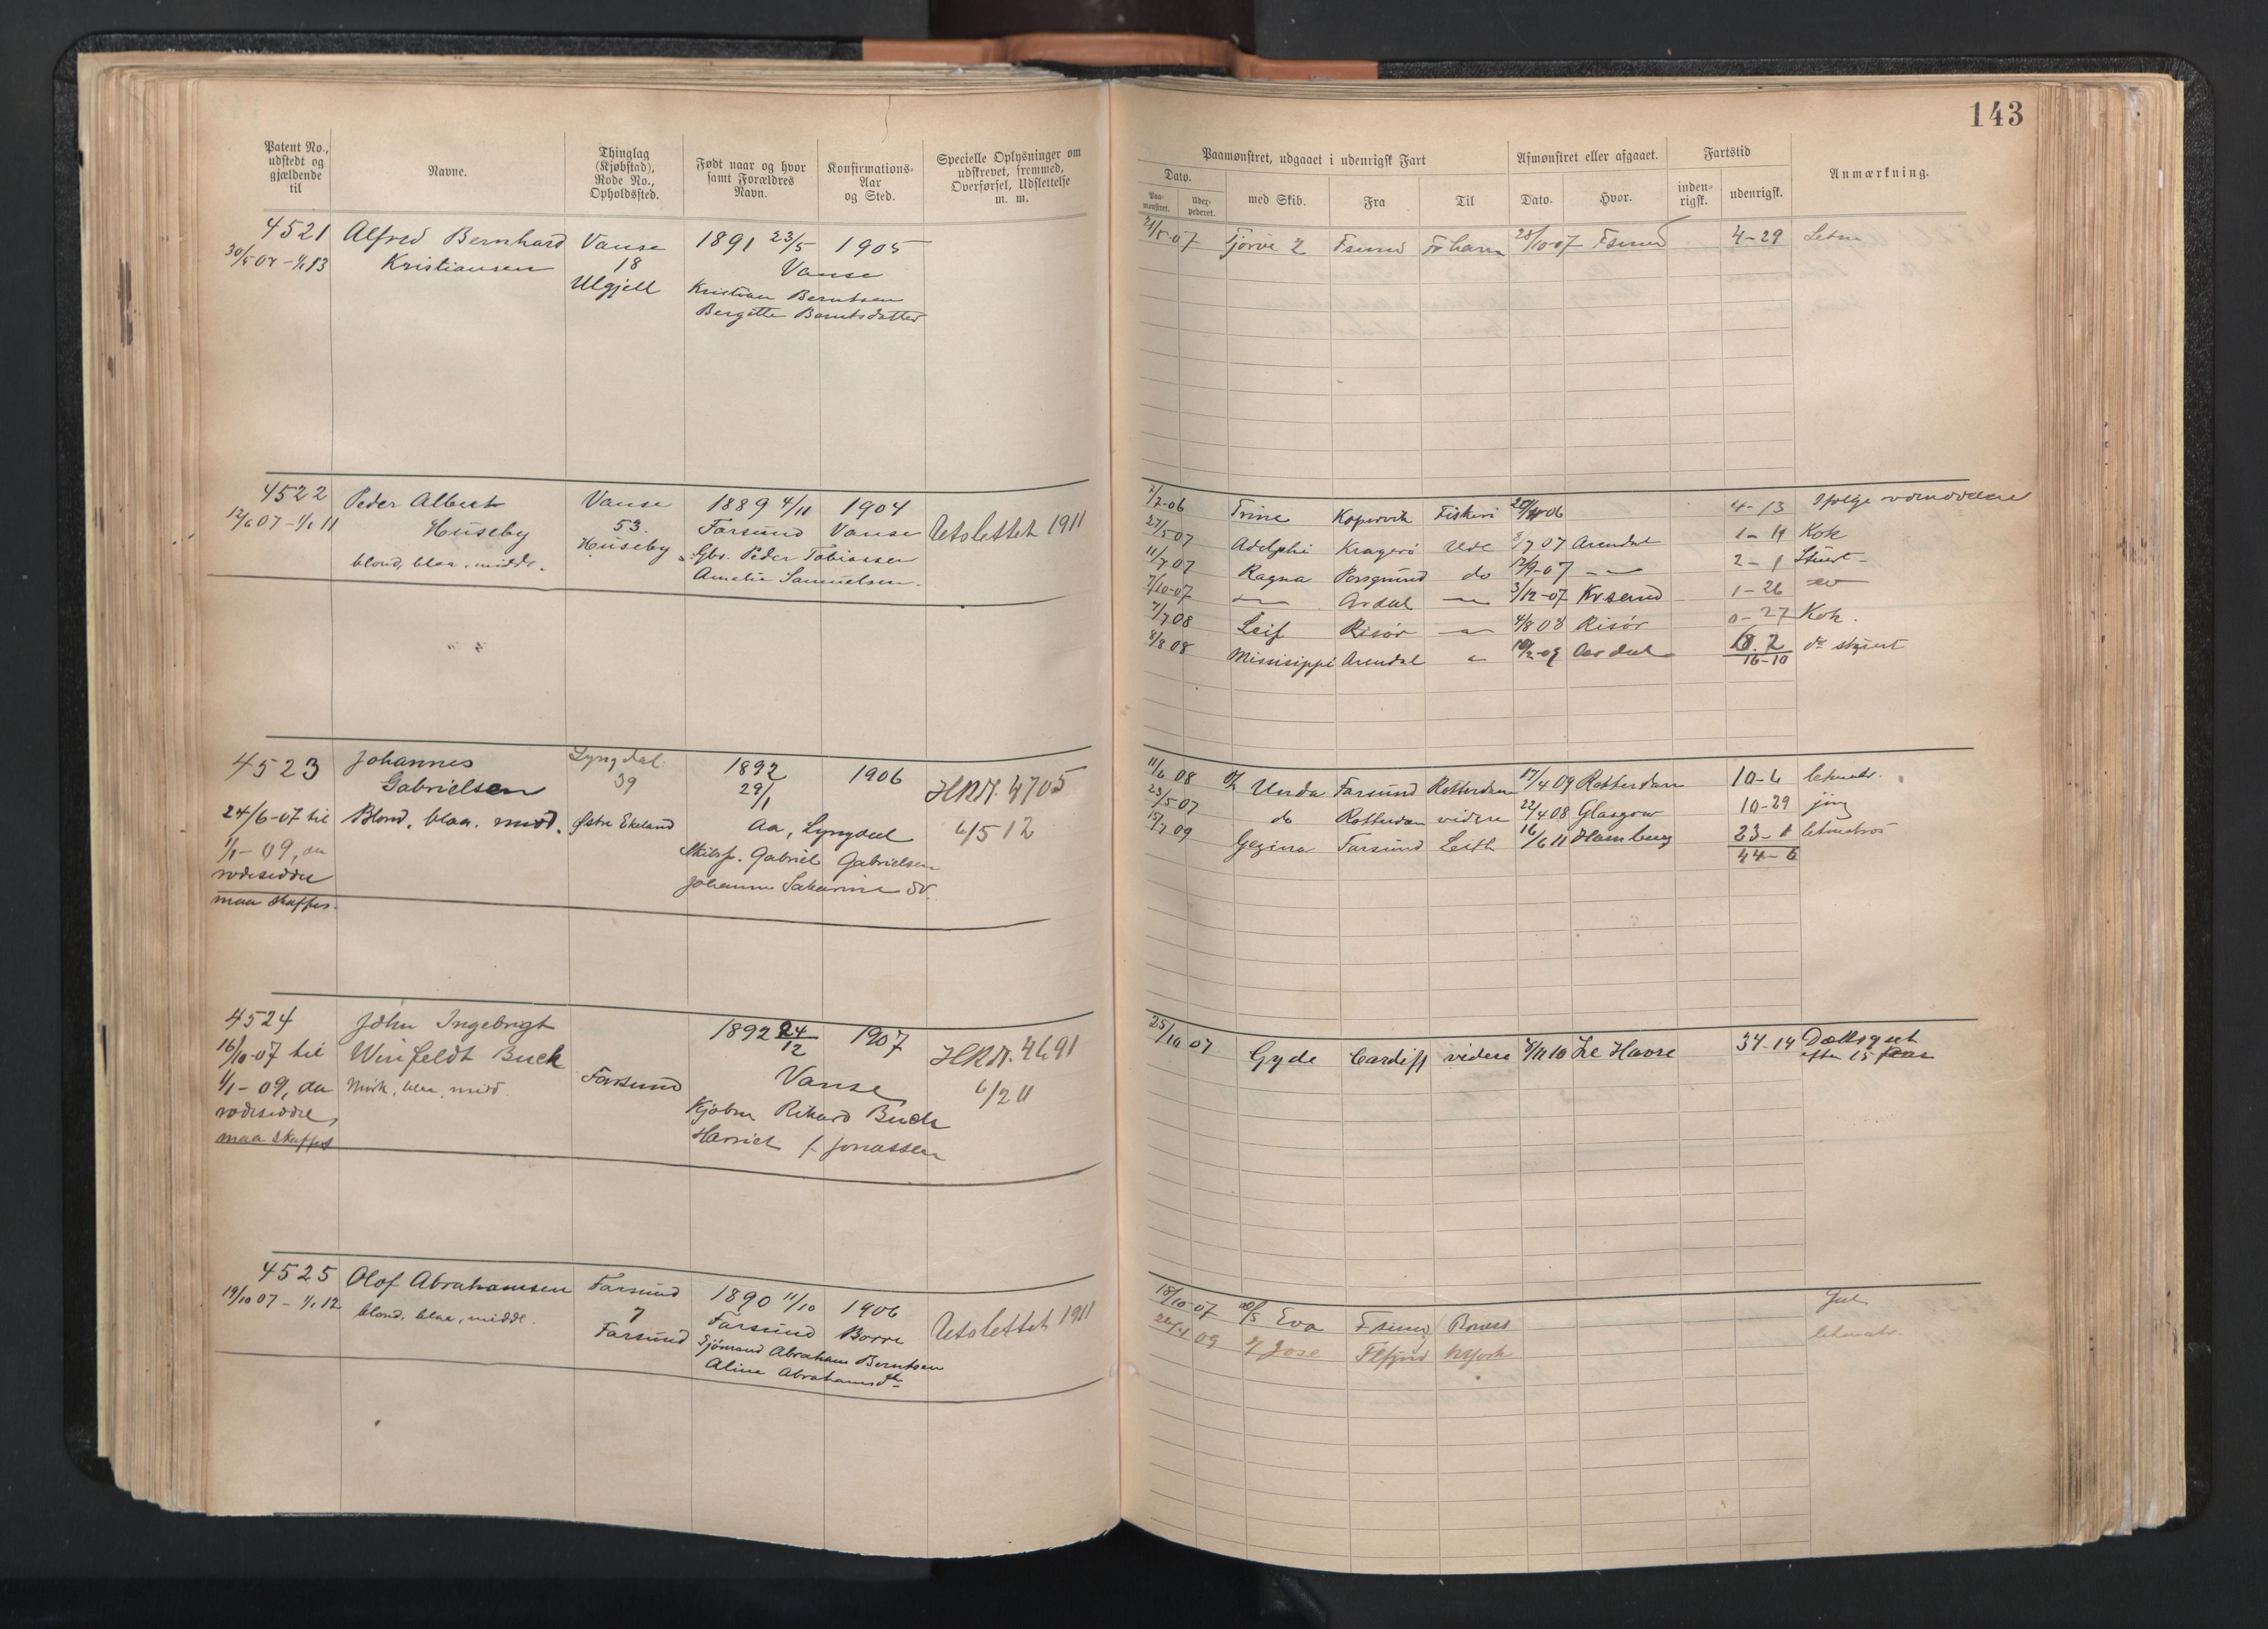 143
Patent No., udstedt og gjældende til
Navne.
Thinglag (Kjøbstad), Rode No., Opholdssted.
Født naar og hvor samt Forældres Navn.
Konfirmations- Aar og Sted.
Specielle Oplysninger om udskrevet, fremmed, Overførsel, Udslettelse m. m.
Paamønstret, udgaaet i udenrigsk Fart
Afmønstret eller afgaaet.
Fartstid
Anmærkning.
Dato.
Paa- mønstret.
Uder- pederet.
med Skib.
Fra
Til
Dato.
Hvor.
inden- rigsk.
udenrigsk.
4521 Alfred Bernhard Vanse 1891 23/5 1905
Kristiansen 18 Vanse
Ulgjell Kristian Berntsen
Bergitte Berntsdatter
21/5-07 Tjorve 2 Fsund 28/10-07 Fsund 4-29 Letm
4522 Peder Albert Vanse 1889 4/11 1904
12/6 07 - 1/1 11 Huseby 53. Farsund Vanse Utslettet 1911
Huseby Gbr. Peder Tobiassen
blond, blaa, midd. Amalie Samuelsen.
2/7-06 Trine Kopervik Fiskeri 4-13 Ifølge
27/5 07 Adelphi Kragerö Ude 8/7 07 Arendal 1-11 Kok
11/7 07 Ragna Porsgrund do 12/9-07 2-1 Stuert
7/10-07 Ardal 3/12-07 Krsand 1-26
7/7 08 Leif Risör 4/8 08 Risör 0-27 Kok.
8/8 08 Missisippi Arendal 10/2-09 Ardal 6.2 do stuert
16-10
4523 Johannes Lyngdal 1892 1906 HRN. 4705
Gabrielsen 39 29/1
24/6-07 til Blond, blaa, midd. Østre Ekeland Aa, Lyngdal 6/5 12
1/1-09, da Skibsf. Gabriel Gabrielsen
rodeseddel Johanne Sakarine
maa skaffes.
11/6 08 Unda Farsund Rotterdam 17/4 09 Rotterdam 10-6 letmatr.
23/5 07 do Rotterdam videre 22/4 08 Glasgow 10-29 jung
15/7 09 Gezina Farsund Leith 16/6 11 Hamburg 23-1 letmatros
44-6
4524 John Ingebrigt 1892 24/12 1907 HRN. 4691
16/10-07 til Winfeldt Buch Farsund Vanse 6/2 11
1/1-09, da Mørk, blaa, midd. Kjøbm Rikard Buch
rodeseddel, Harriet f. Jonassen
maa skaffes
25/10 07 Gyde Cardiff videre 8/11 10 Le Havre 34-14 Dæksgut
efter 15 Aar
4525 Olof Abrahamsen Farsund 1890 11/10 1906
19/10 07 - 1/1 12 blond, blaa, midd. 7 Farsund Borre Utslettet 1911
Farsund Sjömand Abraham Berntsen
Aline Abrahamsdt
18/10-07 Eva Fsund
26/4 09 Jose NYork letmatr.